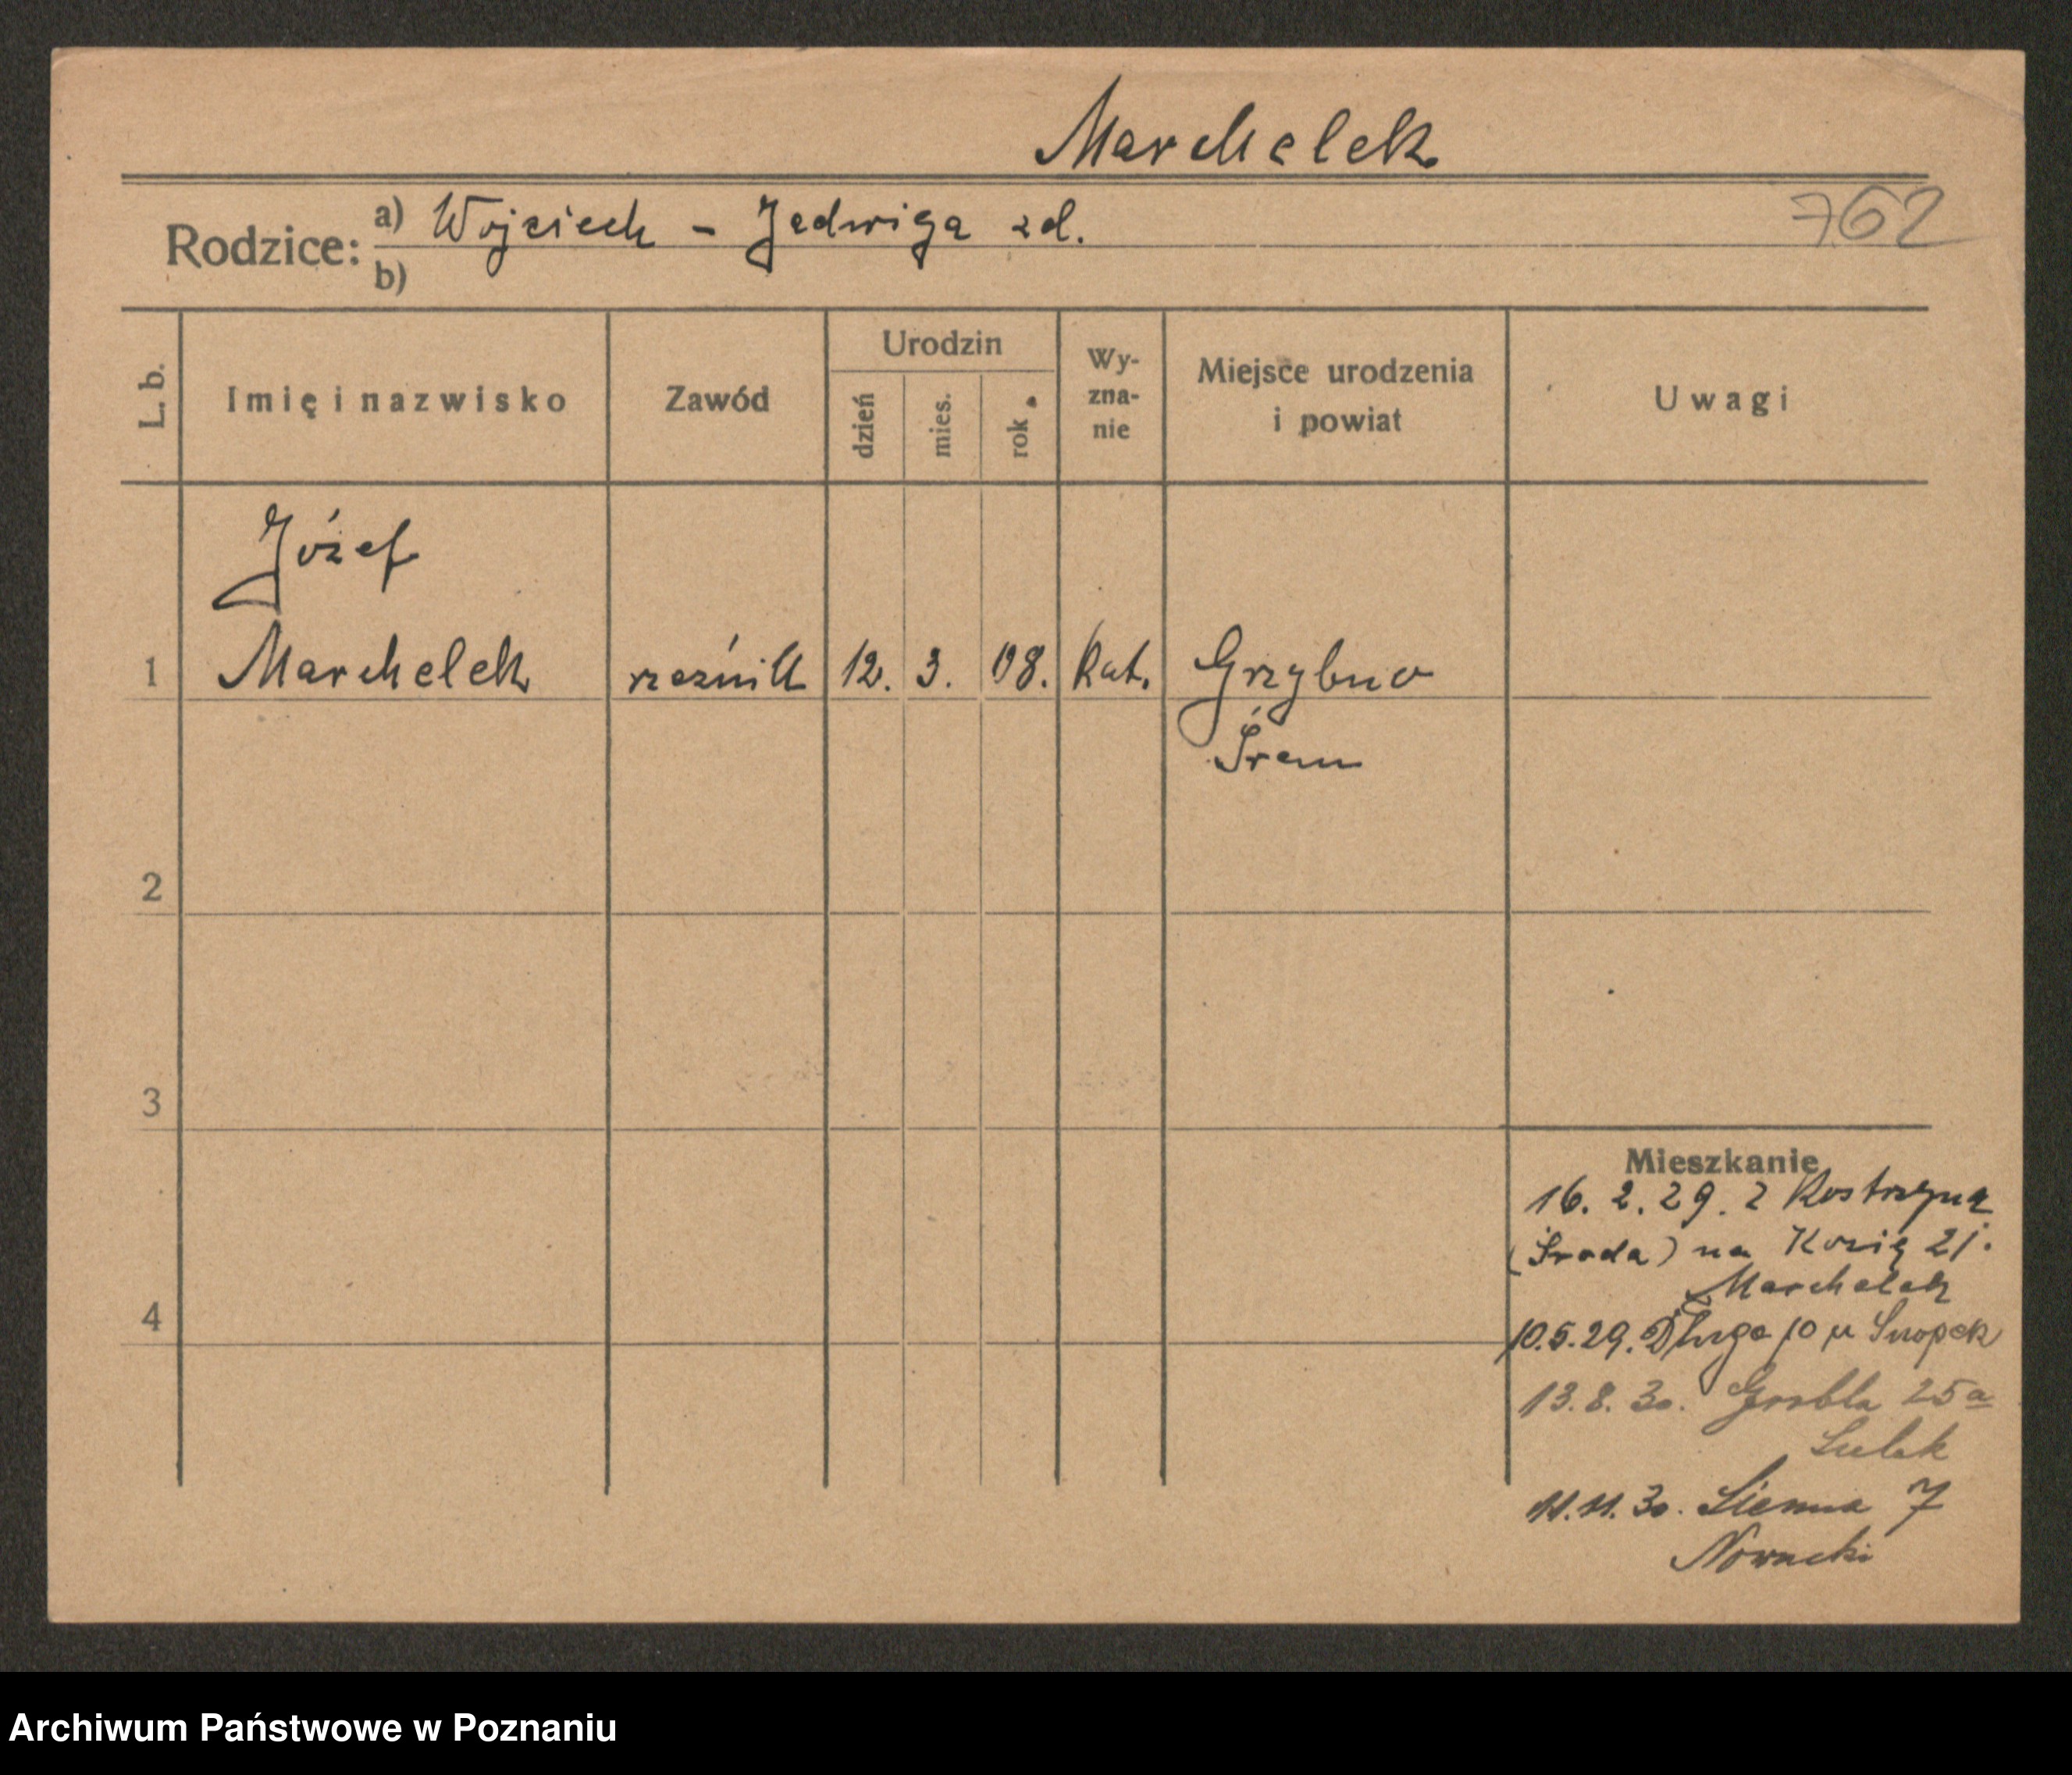 Marchelek
Rodzice: a) Wojciech - Jadwiga zd.
762
b)
L. b.
Imię i nazwisko
Zawód
Urodzin
dzień
mies.
rok
Wy-
zna-
nie
Miejsce urodzenia
i powiat
Uwagi
Józef
1 Marchelek rzeźnik 12. 3. 08. kat. Grzybno
Śrem
2
3
4
Mieszkanie
16. 2. 29. z Kostrzyna
(Środa) na Kozią 21.
Marchelek
10.5.29. Długa 10 u Snopek
13.8.30. Grobla 25a
11.11.30. Sienna 7
Nowacki
Archiwum Państwowe w Poznaniu